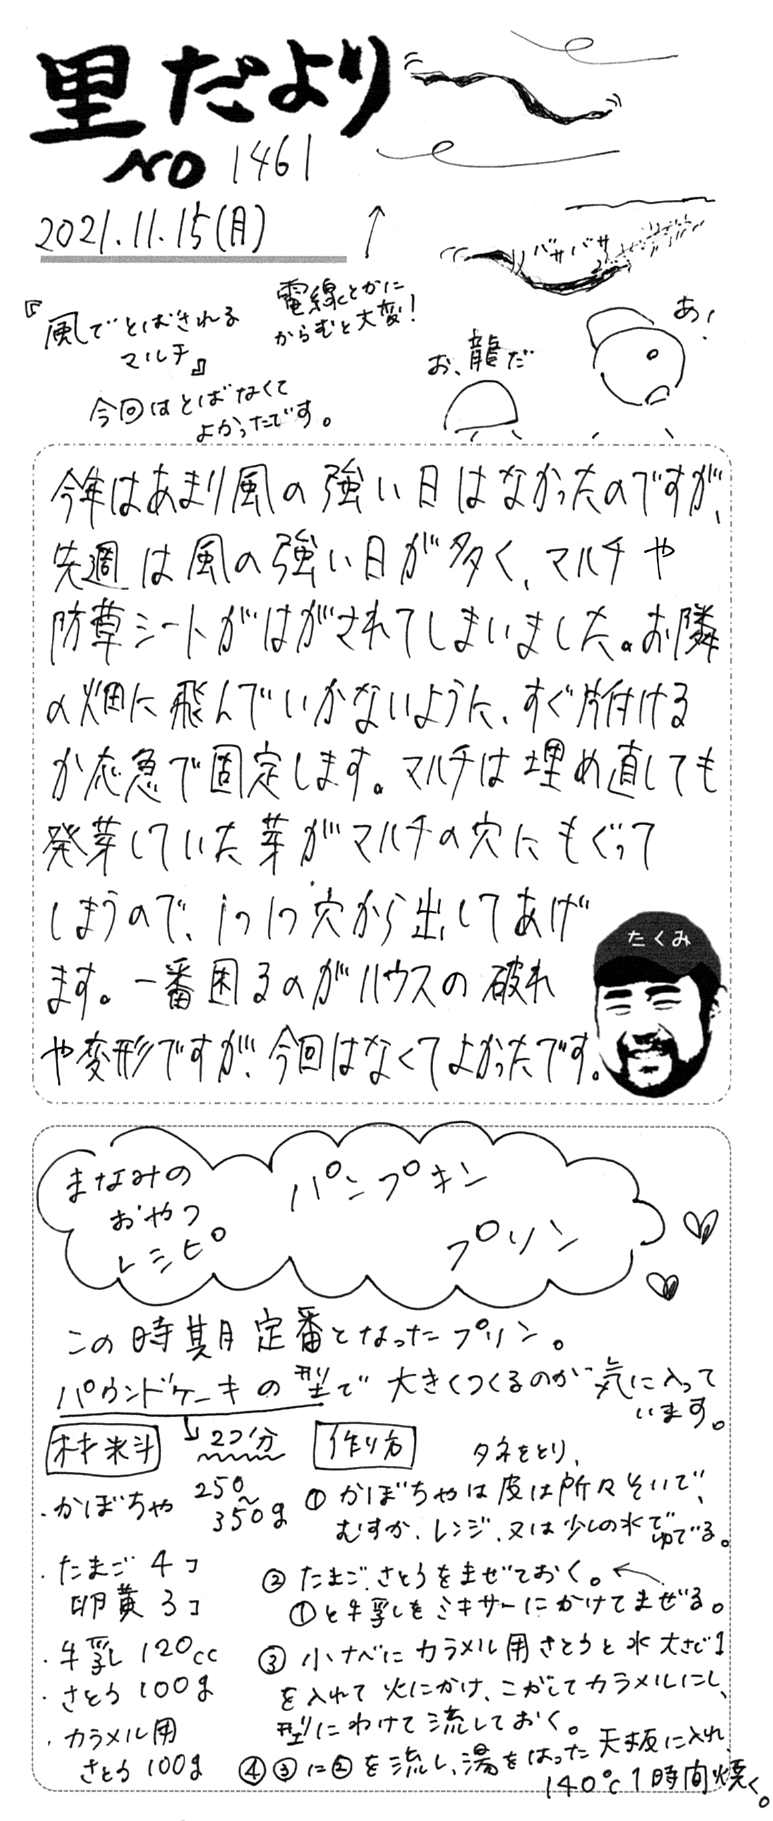 里だより
NO 1461
2021.11.15(月)
『風でとばされる
マルチ』
今回はとばなくて
よかったです。
電線とかに
からむと大変!
バサバサ
お、龍だ
あ!
今年はあまり風の強い日はなかったのですが、
先週は風の強い日が多く、マルチや
防草シートがはがされてしまいました。お隣
の畑に飛んでいかないように、すぐ片付ける
か応急で固定します。マルチは埋め直しても
発芽していた芽がマルチの穴にもぐって
しまうので、1つ1つ穴から出してあげ
ます。一番困るのがハウスの破れ
や変形ですが、今回はなくてよかったです。
たくみ
まなみの
おやつ
レシピ
パンプキン
プリン
この時期定番となったプリン。
パウンドケーキの型で大きくつくるのが気に入って
います。
材料
2コ分
・かぼちゃ 250~
350g
・たまご 4コ
卵黄 3コ
・牛乳 120cc
・さとう 100g
・カラメル用
さとう 100g
作り方
タネをとり、
① かぼちゃは皮は所々そいで、
むすか、レンジ、又は少しの水でゆでる。
② たまご、さとうをまぜておく。
①と牛乳をミキサーにかけてまぜる。
③ 小ナベにカラメル用さとうと水大さじ1
を入れて火にかけ、こがしてカラメルにし、
型にわけて流しておく。
④ ③に②を流し、湯をはった天板に入れ、
140℃1時間焼く。